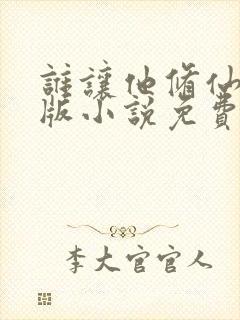 誰讓他脩仙
版小說免費
李大官官人